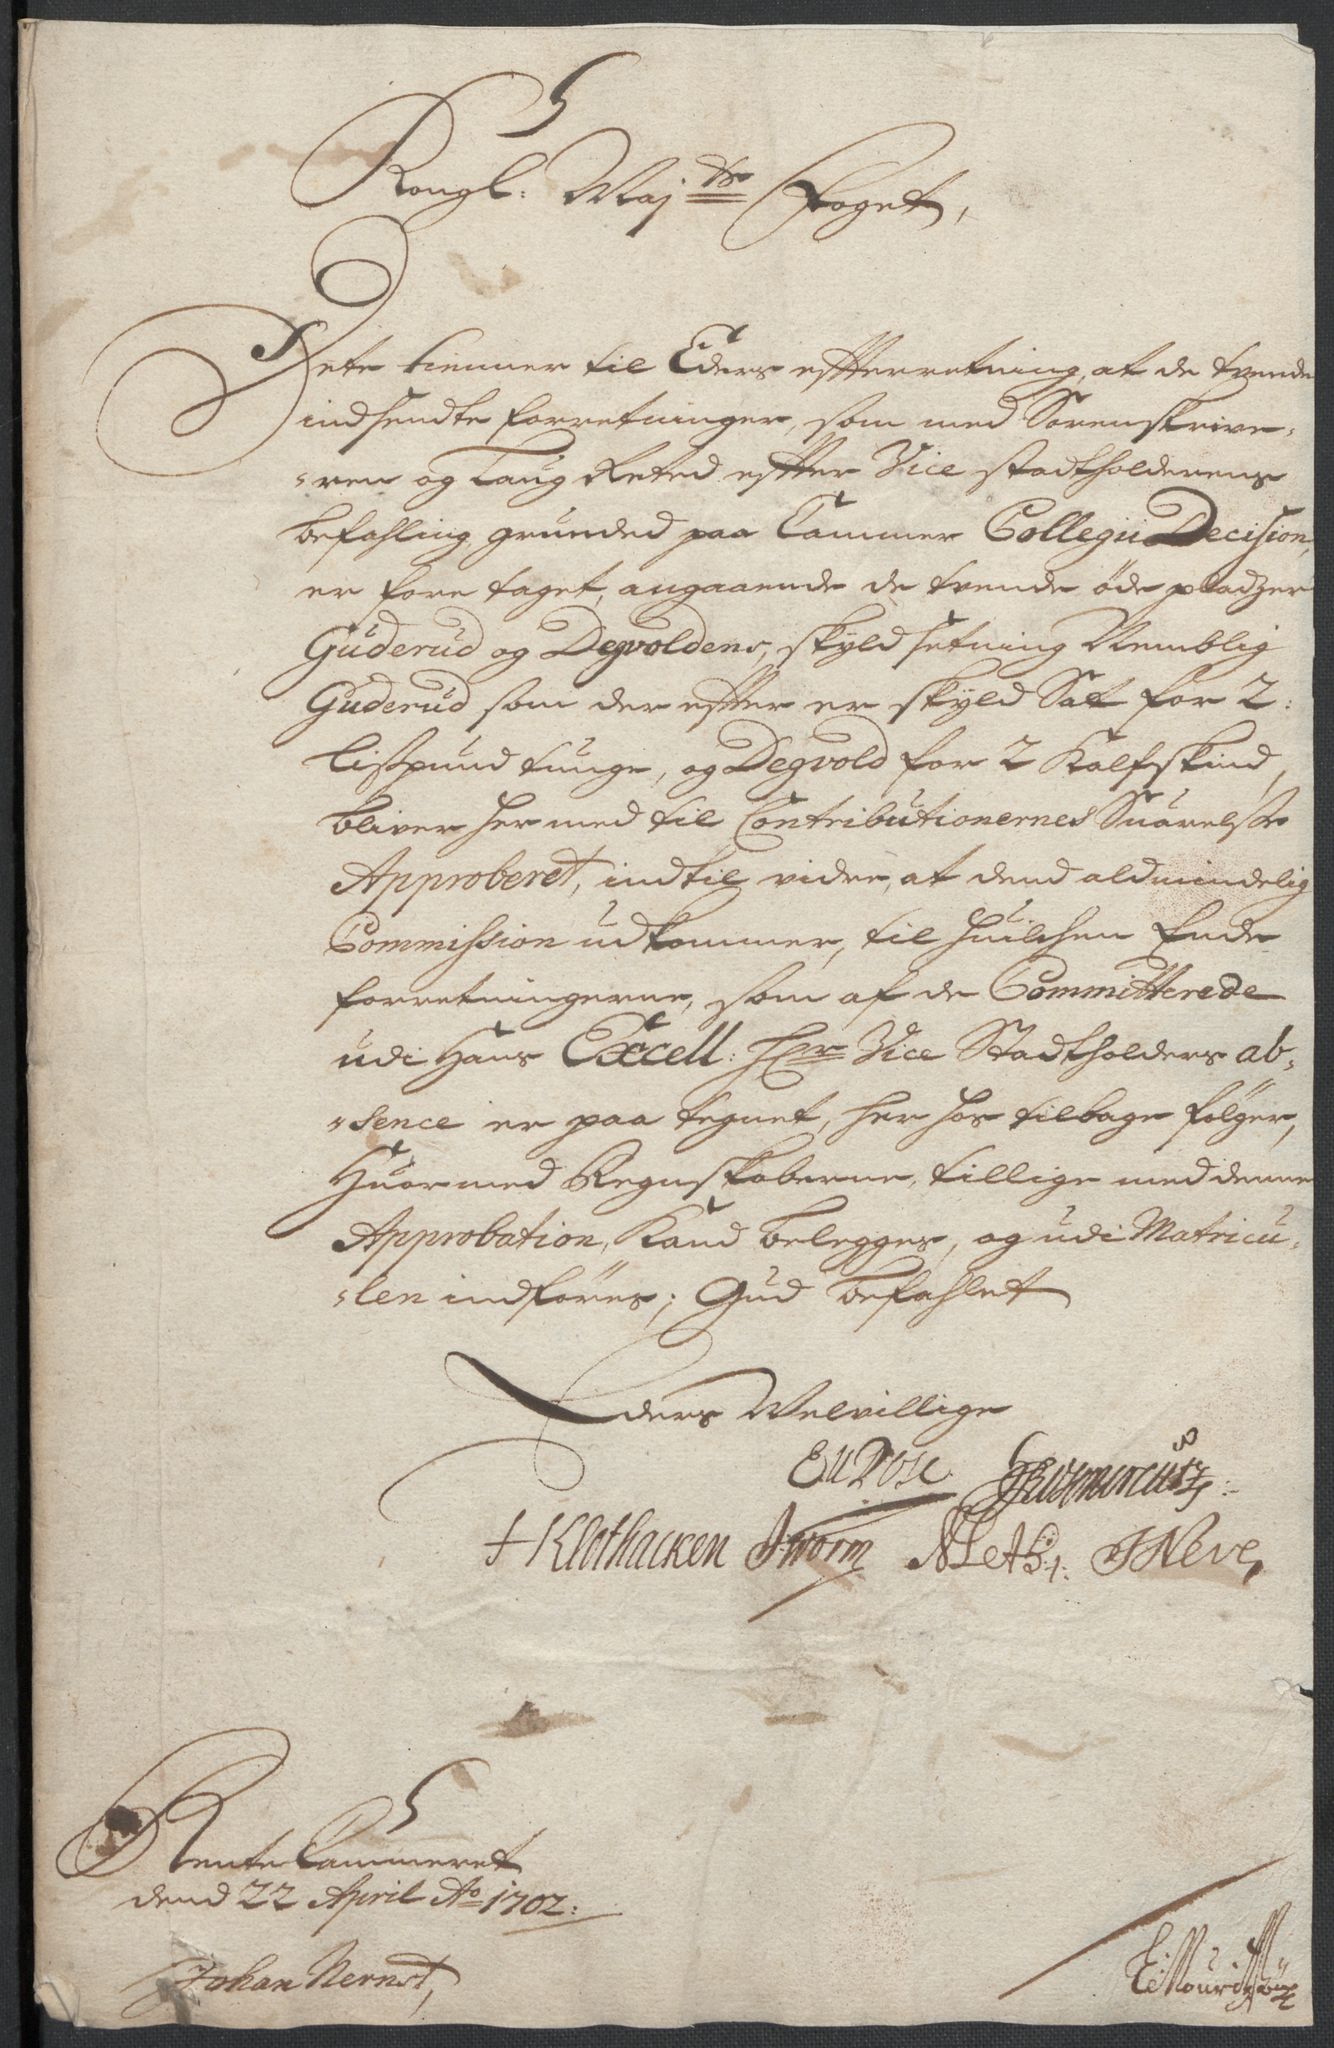 Kongl: Maj ts Foget,
Dete tienner til Eders effterretning, at de tvende
indsendte forretninger, som med Sorenskrive-
-ren og Laug Retted effter Vice Stadtholderens
befahling, grunded paa Cammer Collegii Decision,
er fore taget, angaaende de tvende öde pladzer
Guderud og Degvoldens, skyld setning Nemblig
Guderud som der effter er skyld Sat for 2:
Lispund tunge, og Degvold for 2 Kalfskind,
bliver her med til Contributionernes Suarelse
Approberet, indtil vidre, at dend aldmindelig
Commission udkommer, til huilchen Ende
forretningerne, som af de Committerede
udi Hans Excell: Hr Vice Stadtholders ab-
-sence er paa tegnet, her hos tilbage fölger,
Huormed Regnskaberne, tillige med denne
Approbation, Kand belegges, og udi Matricu-
-len indföres; Gud befahlet
Eders Velvillige
Worm Neve,
Rente Cammeret
dend 22 April Ao 1702:
Johan Nernst,